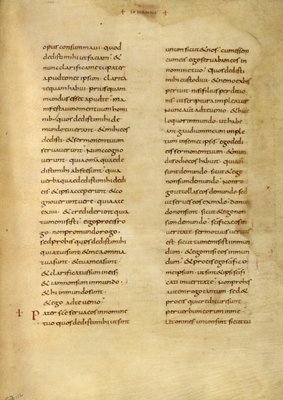 IOHANNE
opus consummaui quod
dedisti mihi ut faciam &
nunc clarifica me tu pater
aput temet ipsum clarita
te quam habui prius quam
mundus esset aput te ma
nifestaui nomen tuum homi
nib; quos dedisti mihi de
mundo tui erant & mihi eos
dedisti & sermonem tuum
seruauerunt Nunc cogno
uerunt quia omnia quae de
disti mihi abs te sunt quia
uerba quae dedisti mihi dedi
eis & ipsi acceperunt & co
gnouerunt uere quia a te
exiui & crediderunt quia
tu me misisti ego pro eis ro
go non pro mundo rogo
sed pro his quos dedisti mihi
quia tui sunt & mea omnia
tua sunt & tua mea sunt
& clarificatus sum in eis
& iam non sum in mundo
& hi in mundo sunt
& ego ad te uenio
Pater sce serua eos in nomine
tuo quos dedisti mihi ut sint
unum sicut & nos cum essem
cum eis ego seruabam eos in
nomine tuo quos dedisti
mihi custodiui & nemo ex his
periuit nisi filius perditio
nis ut scriptura impleatur
nunc autem ad te uenio & haec
loquor in mundo ut habe
ant gaudium meum imple
tum in semet ipsis ego dedi
eis sermonem tuum & mun
dus odio eos habuit quia non
sunt de mundo sicut & ego
non sum de mundo non ro
go ut tollas eos de mundo sed
ut serues eos ex malo de mun
do non sunt sicut & ego non
sum de mundo scifica eos in
ueritate sermo tuus ueritas
est sicut tu me misisti in mun
dum & ego misi eos in mun
dum & pro eis ego scifico
me ipsum ut sint & ipsi scifi
cati in ueritate Non pro his
autem rogo tantum sed &
pro eis qui credituri sunt
per uerbum eorum in me
ut omnes unum sint sicut tu